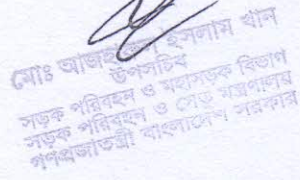 মোঃ ইসলাম খান
উপসচিব
সড়ক পরিবহন ও মহাসড়ক বিভাগ
সড়ক পরিবহন ও সেতু মন্ত্রণালয়
গণপ্রজাতন্ত্রী বাংলাদেশ সরকার